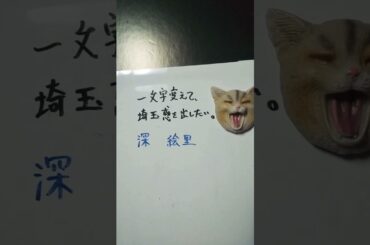 一文字変えて、
埼玉感を出したい。
深 絵里
深